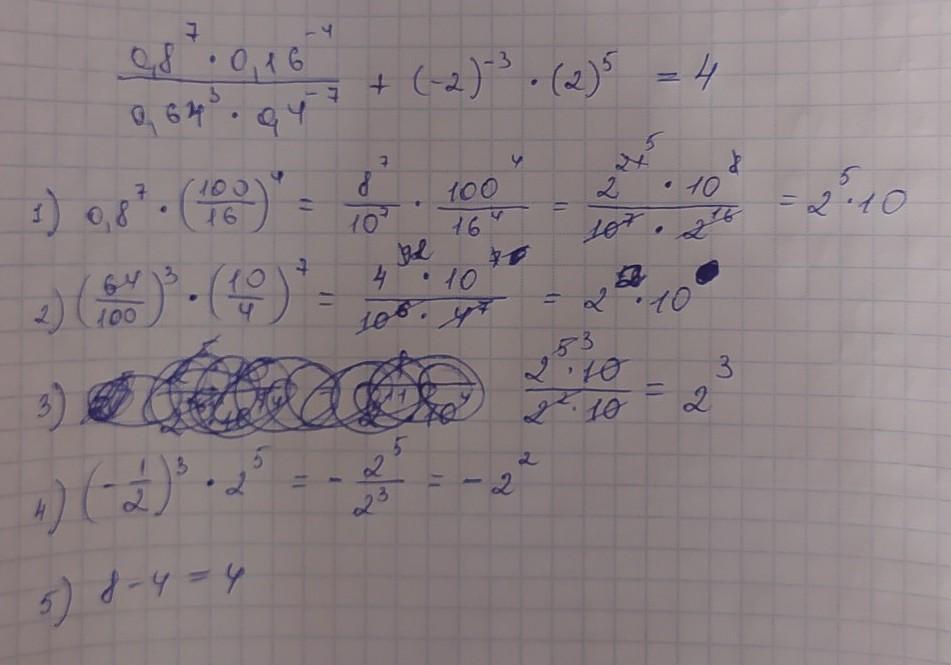 0,8⁷ · 0,16⁻⁴ / 0,64³ · 0,4⁻⁷ + (-2)⁻³ · (2)⁵ = 4
1) 0,8⁷ · (100/16)⁴ = 8⁷/10⁷ · 100⁴/16⁴ = 2²¹ · 10⁸ / 10⁷ · 2¹⁶ = 2⁵ · 10
2) (64/100)³ · (10/4)⁷ = 4 · 10 / 10⁶ · 4⁷ = 2 · 10
3) 2⁵ ³ · 10 / 2² · 10 = 2³
4) (-1/2)³ · 2⁵ = - 2⁵/2³ = - 2²
5) 8 - 4 = 4